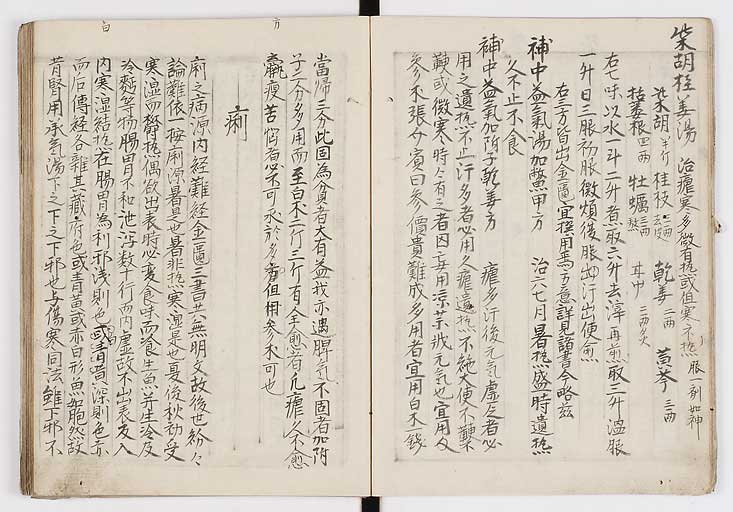 柴胡桂姜湯 治瘧寒多微有热或但寒不热 服一剤如神
柴胡半斤 桂枝三两去皮 乾姜二两 黄芩三两
括蔞根四两 牡蠣三两熬 甘中二两炙
右七味以水一斗二升煮取六升去滓再煎取三升温服
一升日三服初服微煩後服出汗出便愈
右三方皆出金匱宜撰用焉方意詳見諸書今略兹
補中益氣湯加鱉甲方 治六七月暑热盛時遺热
久不止不食
補中益氣加附子乾姜方 瘧多汗後元氣虚乏者必
用之遺热不止汗多者必用久瘧遺热不絶大便不鞕
鞕或微寒時々有之者因妄用凉茶元氣也宜用
参禾張介賓曰参價貴難成多用者宜用白禾一錢
當帰三分此固為貧者大有益我亦遇脾氣不固者加附
子二分多用而至白禾二斤三斤有全愈者凡瘧久不愈
羸瘦苦者必不可求於多方但用参禾可也
痢
痢之病源内経難経金匱三書共無明文故後世紛々
論難依一按痢源暑是也暑非热寒湿是也夏従秋初受
寒湿而欝热偶欲出表時必変食味而食生魚并生冷及
冷麪等物腸胃不和泄泻数十行而内虚故不出表友入
内寒湿結热在腸胃為利邪浅則色或青黄深則色赤
而后傳経各雑其蔵府色或青黄或赤白形魚如胞然故
昔賢用承氣湯下之下之下邪也与傷寒同法雖下邪不
方
白